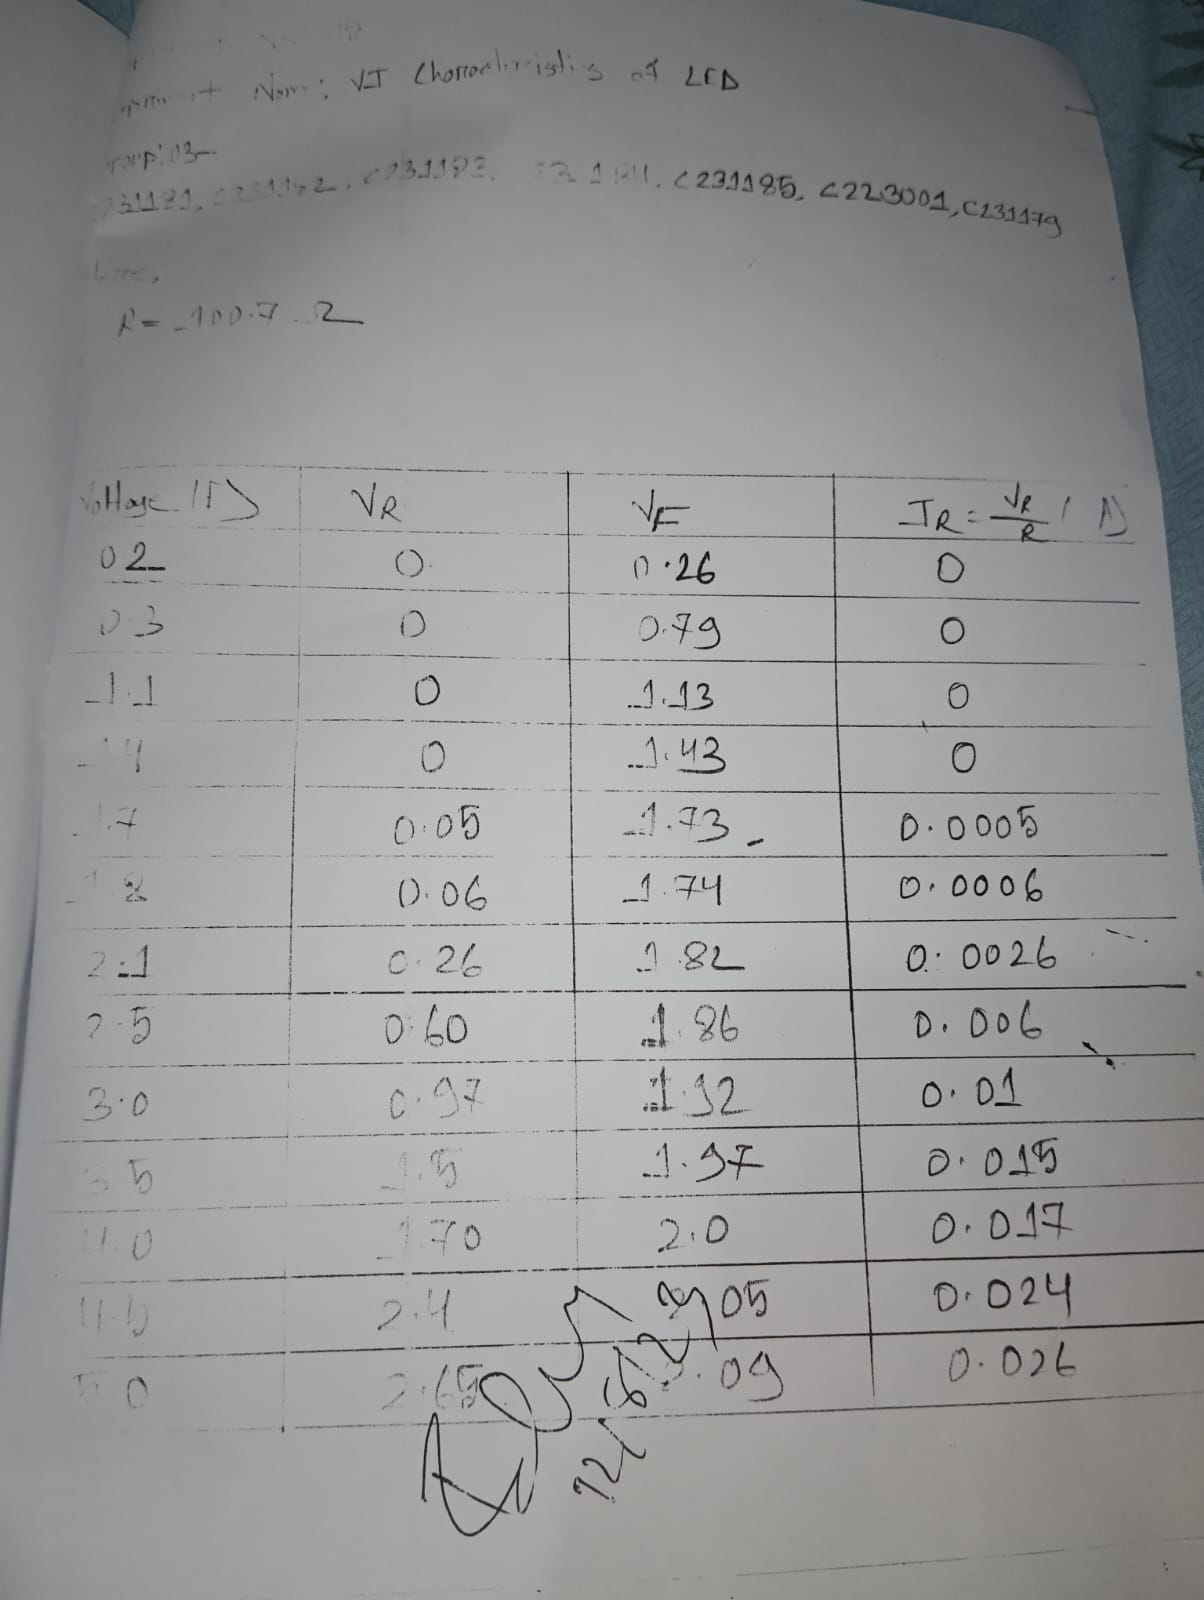 Name: VI Characteristics of LED
C231183, C231185, C223001, C231179
R = 100.7 Ω
Voltage VR VF IR = VR/R (A)
02 0 0.26 0
0.3 0 0.79 0
1.1 0 1.13 0
1.4 0 1.43 0
1.7 0.05 1.73 0.0005
1.8 0.06 1.74 0.0006
2.1 0.26 1.82 0.0026
2.5 0.60 1.86 0.006
3.0 0.97 1.92 0.01
3.5 1.5 1.97 0.015
4.0 1.70 2.0 0.017
4.5 2.4 05 0.024
5.0 2.65 .09 0.026